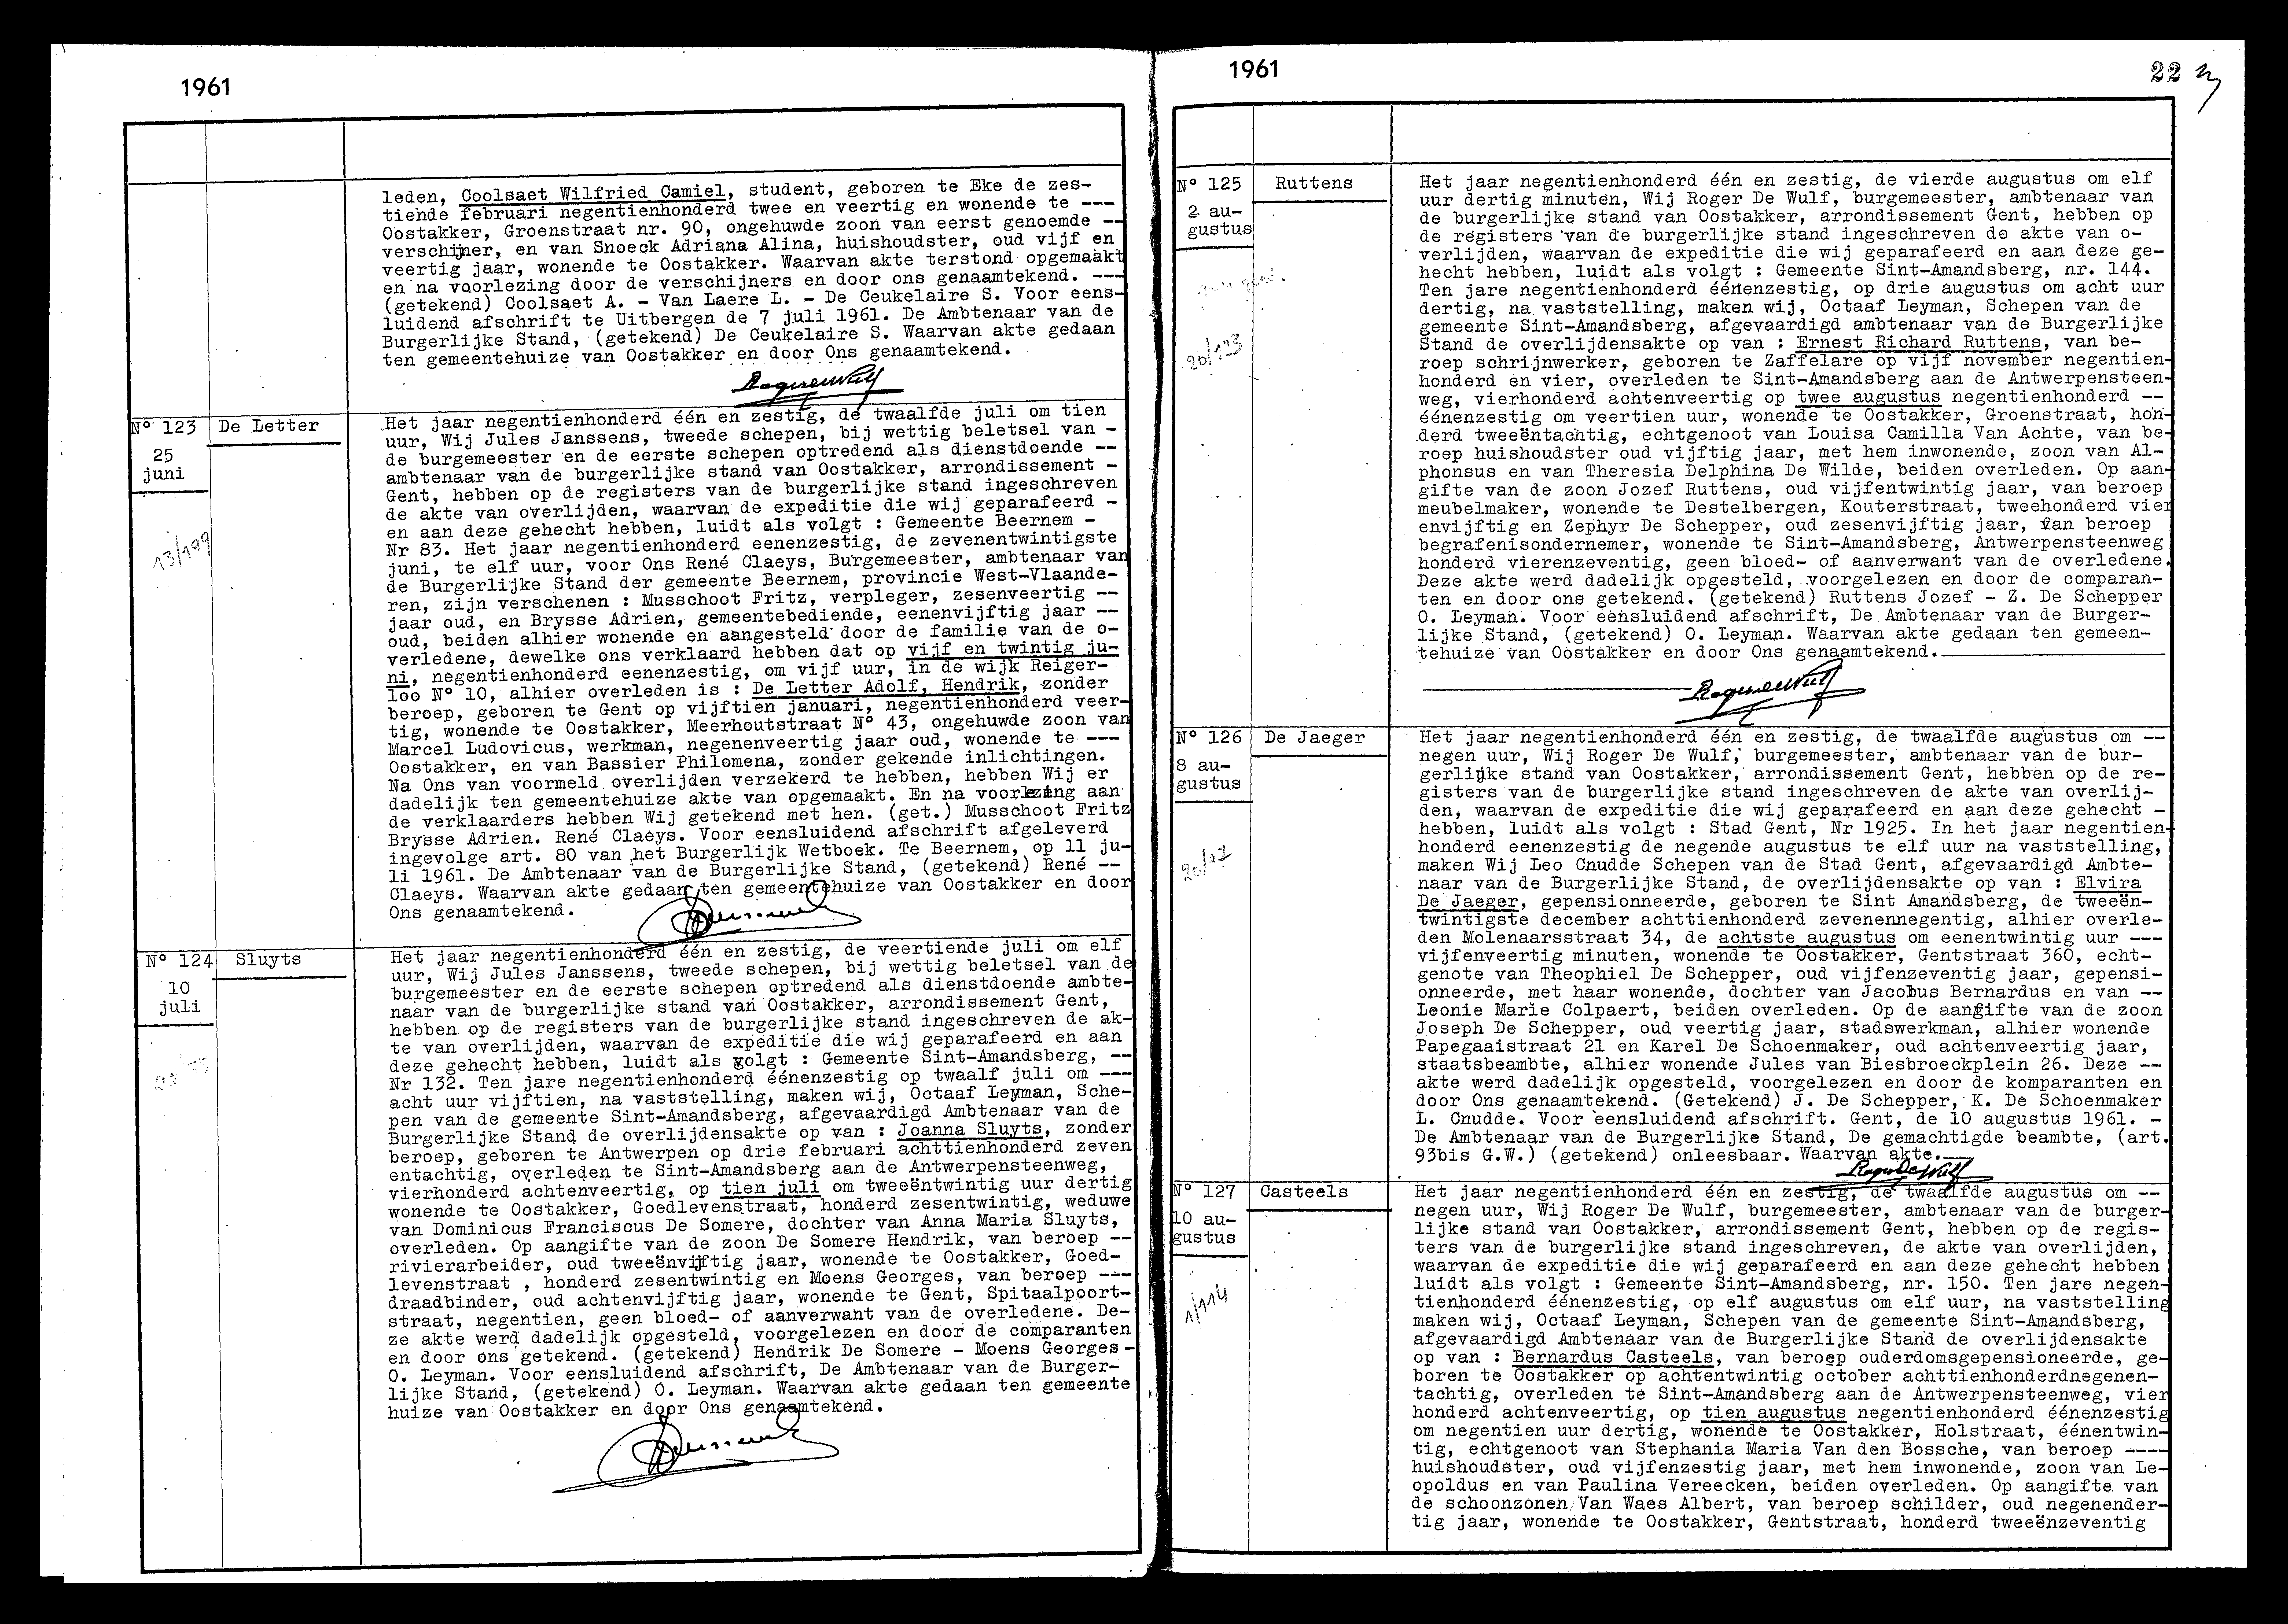 1961
leden, Coolsaet Wilfried Camiel, student, geboren te Eke de zes-
tiende februari negentienhonderd twee en veertig en wonende te ---
Oostakker, Groenstraat nr. 90, ongehuwde zoon van eerst genoemde --
verschijner, en van Snoeck Adriana Alina, huishoudster, oud vijf en
veertig jaar, wonende te Oostakker. Waarvan akte terstond opgemaakt
en na voorlezing door de verschijners en door ons genaamtekend. ---
(getekend) Coolsaet A. - Van Laere L. - De Ceukelaire S. Voor eens-
luidend afschrift te Uitbergen de 7 juli 1961. De Ambtenaar van de
Burgerlijke Stand, (getekend) De Ceukelaire S. Waarvan akte gedaan
ten gemeentehuize van Oostakker en door Ons genaamtekend.
RogerdeWulf
N° 123
De Letter
25
juni
13/199
Het jaar negentienhonderd één en zestig, de twaalfde juli om tien
uur, Wij Jules Janssens, tweede schepen, bij wettig beletsel van -
de burgemeester en de eerste schepen optredend als dienstdoende --
ambtenaar van de burgerlijke stand van Oostakker, arrondissement -
Gent, hebben op de registers van de burgerlijke stand ingeschreven
de akte van overlijden, waarvan de expeditie die wij geparafeerd -
en aan deze gehecht hebben, luidt als volgt : Gemeente Beernem -
Nr 83. Het jaar negentienhonderd eenenzestig, de zevenentwintigste
juni, te elf uur, voor Ons René Claeys, Burgemeester, ambtenaar van
de Burgerlijke Stand der gemeente Beernem, provincie West-Vlaande-
ren, zijn verschenen : Musschoot Fritz, verpleger, zesenveertig --
jaar oud, en Brysse Adrien, gemeentebediende, eenenvijftig jaar --
oud, beiden alhier wonende en aangesteld door de familie van de o-
verledene, dewelke ons verklaard hebben dat op vijf en twintig ju-
ni, negentienhonderd eenenzestig, om vijf uur, in de wijk Reiger-
loo N° 10, alhier overleden is : De Letter Adolf, Hendrik, zonder
beroep, geboren te Gent op vijftien januari, negentienhonderd veer-
tig, wonende te Oostakker, Meerhoutstraat N° 43, ongehuwde zoon van
Marcel Ludovicus, werkman, negenenveertig jaar oud, wonende te ---
Oostakker, en van Bassier Philomena, zonder gekende inlichtingen.
Na Ons van voormeld overlijden verzekerd te hebben, hebben Wij er
dadelijk ten gemeentehuize akte van opgemaakt. En na voorlezing aan
de verklaarders hebben Wij getekend met hen. (get.) Musschoot Fritz
Brysse Adrien. René Claeys. Voor eensluidend afschrift afgeleverd
ingevolge art. 80 van het Burgerlijk Wetboek. Te Beernem, op 11 ju-
li 1961. De Ambtenaar van de Burgerlijke Stand, (getekend) René --
Claeys. Waarvan akte gedaan ten gemeentehuize van Oostakker en door
Ons genaamtekend.
N° 124
Sluyts
10
juli
Het jaar negentienhonderd één en zestig, de veertiende juli om elf
uur, Wij Jules Janssens, tweede schepen, bij wettig beletsel van de
burgemeester en de eerste schepen optredend als dienstdoende ambte-
naar van de burgerlijke stand van Oostakker, arrondissement Gent,
hebben op de registers van de burgerlijke stand ingeschreven de ak-
te van overlijden, waarvan de expeditie die wij geparafeerd en aan
deze gehecht hebben, luidt als volgt : Gemeente Sint-Amandsberg, --
Nr 132. Ten jare negentienhonderd éénenzestig op twaalf juli om ---
acht uur vijftien, na vaststelling, maken wij, Octaaf Leyman, Sche-
pen van de gemeente Sint-Amandsberg, afgevaardigd Ambtenaar van de
Burgerlijke Stand de overlijdensakte op van : Joanna Sluyts, zonder
beroep, geboren te Antwerpen op drie februari achttienhonderd zeven
entachtig, overleden te Sint-Amandsberg aan de Antwerpensteenweg,
vierhonderd achtenveertig, op tien juli om tweeëntwintig uur dertig
wonende te Oostakker, Goedlevenstraat, honderd zesentwintig, weduwe
van Dominicus Franciscus De Somere, dochter van Anna Maria Sluyts,
overleden. Op aangifte van de zoon De Somere Hendrik, van beroep --
rivierarbeider, oud tweeënvijftig jaar, wonende te Oostakker, Goed-
levenstraat , honderd zesentwintig en Moens Georges, van beroep ---
draadbinder, oud achtenvijftig jaar, wonende te Gent, Spitaalpoort-
straat, negentien, geen bloed- of aanverwant van de overledene. De-
ze akte werd dadelijk opgesteld, voorgelezen en door de comparanten
en door ons getekend. (getekend) Hendrik De Somere - Moens Georges -
O. Leyman. Voor eensluidend afschrift, De Ambtenaar van de Burger-
lijke Stand, (getekend) O. Leyman. Waarvan akte gedaan ten gemeente
huize van Oostakker en door Ons genaamtekend.
1961
22
N° 125
Ruttens
2 au-
gustus
20/123
Het jaar negentienhonderd één en zestig, de vierde augustus om elf
uur dertig minuten, Wij Roger De Wulf, burgemeester, ambtenaar van
de burgerlijke stand van Oostakker, arrondissement Gent, hebben op
de registers van de burgerlijke stand ingeschreven de akte van o-
verlijden, waarvan de expeditie die wij geparafeerd en aan deze ge-
hecht hebben, luidt als volgt : Gemeente Sint-Amandsberg, nr. 144.
Ten jare negentienhonderd éénenzestig, op drie augustus om acht uur
dertig, na vaststelling, maken wij, Octaaf Leyman, Schepen van de
gemeente Sint-Amandsberg, afgevaardigd ambtenaar van de Burgerlijke
Stand de overlijdensakte op van : Ernest Richard Ruttens, van be-
roep schrijnwerker, geboren te Zaffelare op vijf november negentien-
honderd en vier, overleden te Sint-Amandsberg aan de Antwerpensteen-
weg, vierhonderd achtenveertig op twee augustus negentienhonderd --
éénenzestig om veertien uur, wonende te Oostakker, Groenstraat, hon-
derd tweeëntachtig, echtgenoot van Louisa Camilla Van Achte, van be-
roep huishoudster oud vijftig jaar, met hem inwonende, zoon van Al-
phonsus en van Theresia Delphina De Wilde, beiden overleden. Op aan-
gifte van de zoon Jozef Ruttens, oud vijfentwintig jaar, van beroep
meubelmaker, wonende te Destelbergen, Kouterstraat, tweehonderd vier
envijftig en Zephyr De Schepper, oud zesenvijftig jaar, van beroep
begrafenisondernemer, wonende te Sint-Amandsberg, Antwerpensteenweg
honderd vierenzeventig, geen bloed- of aanverwant van de overledene.
Deze akte werd dadelijk opgesteld, voorgelezen en door de comparan-
ten en door ons getekend. (getekend) Ruttens Jozef - Z. De Schepper
O. Leyman. Voor eensluidend afschrift, De Ambtenaar van de Burger-
lijke Stand, (getekend) O. Leyman. Waarvan akte gedaan ten gemeen-
tehuize van Oostakker en door Ons genaamtekend.
RogerdeWulf
N° 126
De Jaeger
8 au-
gustus
Het jaar negentienhonderd één en zestig, de twaalfde augustus om --
negen uur, Wij Roger De Wulf, burgemeester, ambtenaar van de bur-
gerlijke stand van Oostakker, arrondissement Gent, hebben op de re-
gisters van de burgerlijke stand ingeschreven de akte van overlij-
den, waarvan de expeditie die wij geparafeerd en aan deze gehecht -
hebben, luidt als volgt : Stad Gent, Nr 1925. In het jaar negentien-
honderd eenenzestig de negende augustus te elf uur na vaststelling,
maken Wij Leo Cnudde Schepen van de Stad Gent, afgevaardigd Ambte-
naar van de Burgerlijke Stand, de overlijdensakte op van : Elvira
De Jaeger, gepensionneerde, geboren te Sint Amandsberg, de tweeën-
twintigste december achttienhonderd zevenennegentig, alhier overle-
den Molenaarsstraat 34, de achtste augustus om eenentwintig uur ---
vijfenveertig minuten, wonende te Oostakker, Gentstraat 360, echt-
genote van Theophiel De Schepper, oud vijfenzeventig jaar, gepensi-
onneerde, met haar wonende, dochter van Jacobus Bernardus en van --
Leonie Marie Colpaert, beiden overleden. Op de aangifte van de zoon
Joseph De Schepper, oud veertig jaar, stadswerkman, alhier wonende
Papegaaistraat 21 en Karel De Schoenmaker, oud achtenveertig jaar,
staatsbeambte, alhier wonende Jules van Biesbroeckplein 26. Deze --
akte werd dadelijk opgesteld, voorgelezen en door de komparanten en
door Ons genaamtekend. (Getekend) J. De Schepper, K. De Schoenmaker
L. Cnudde. Voor eensluidend afschrift. Gent, de 10 augustus 1961. -
De Ambtenaar van de Burgerlijke Stand, De gemachtigde beambte, (art.
93bis G.W.) (getekend) onleesbaar. Waarvan akte.
Roger De Wulf
N° 127
Casteels
10 au-
gustus
1/114
Het jaar negentienhonderd één en zestig, de twaalfde augustus om --
negen uur, Wij Roger De Wulf, burgemeester, ambtenaar van de burger-
lijke stand van Oostakker, arrondissement Gent, hebben op de regis-
ters van de burgerlijke stand ingeschreven, de akte van overlijden,
waarvan de expeditie die wij geparafeerd en aan deze gehecht hebben
luidt als volgt : Gemeente Sint-Amandsberg, nr. 150. Ten jare negen-
tienhonderd éénenzestig, op elf augustus om elf uur, na vaststelling
maken wij, Octaaf Leyman, Schepen van de gemeente Sint-Amandsberg,
afgevaardigd Ambtenaar van de Burgerlijke Stand de overlijdensakte
op van : Bernardus Casteels, van beroep ouderdomsgepensioneerde, ge-
boren te Oostakker op achtentwintig october achttienhonderdnegenen-
tachtig, overleden te Sint-Amandsberg aan de Antwerpensteenweg, vier
honderd achtenveertig, op tien augustus negentienhonderd éénenzestig
om negentien uur dertig, wonende te Oostakker, Holstraat, éénentwin-
tig, echtgenoot van Stephania Maria Van den Bossche, van beroep ----
huishoudster, oud vijfenzestig jaar, met hem inwonende, zoon van Le-
opoldus en van Paulina Vereecken, beiden overleden. Op aangifte van
de schoonzonen Van Waes Albert, van beroep schilder, oud negenender-
tig jaar, wonende te Oostakker, Gentstraat, honderd tweeënzeventig